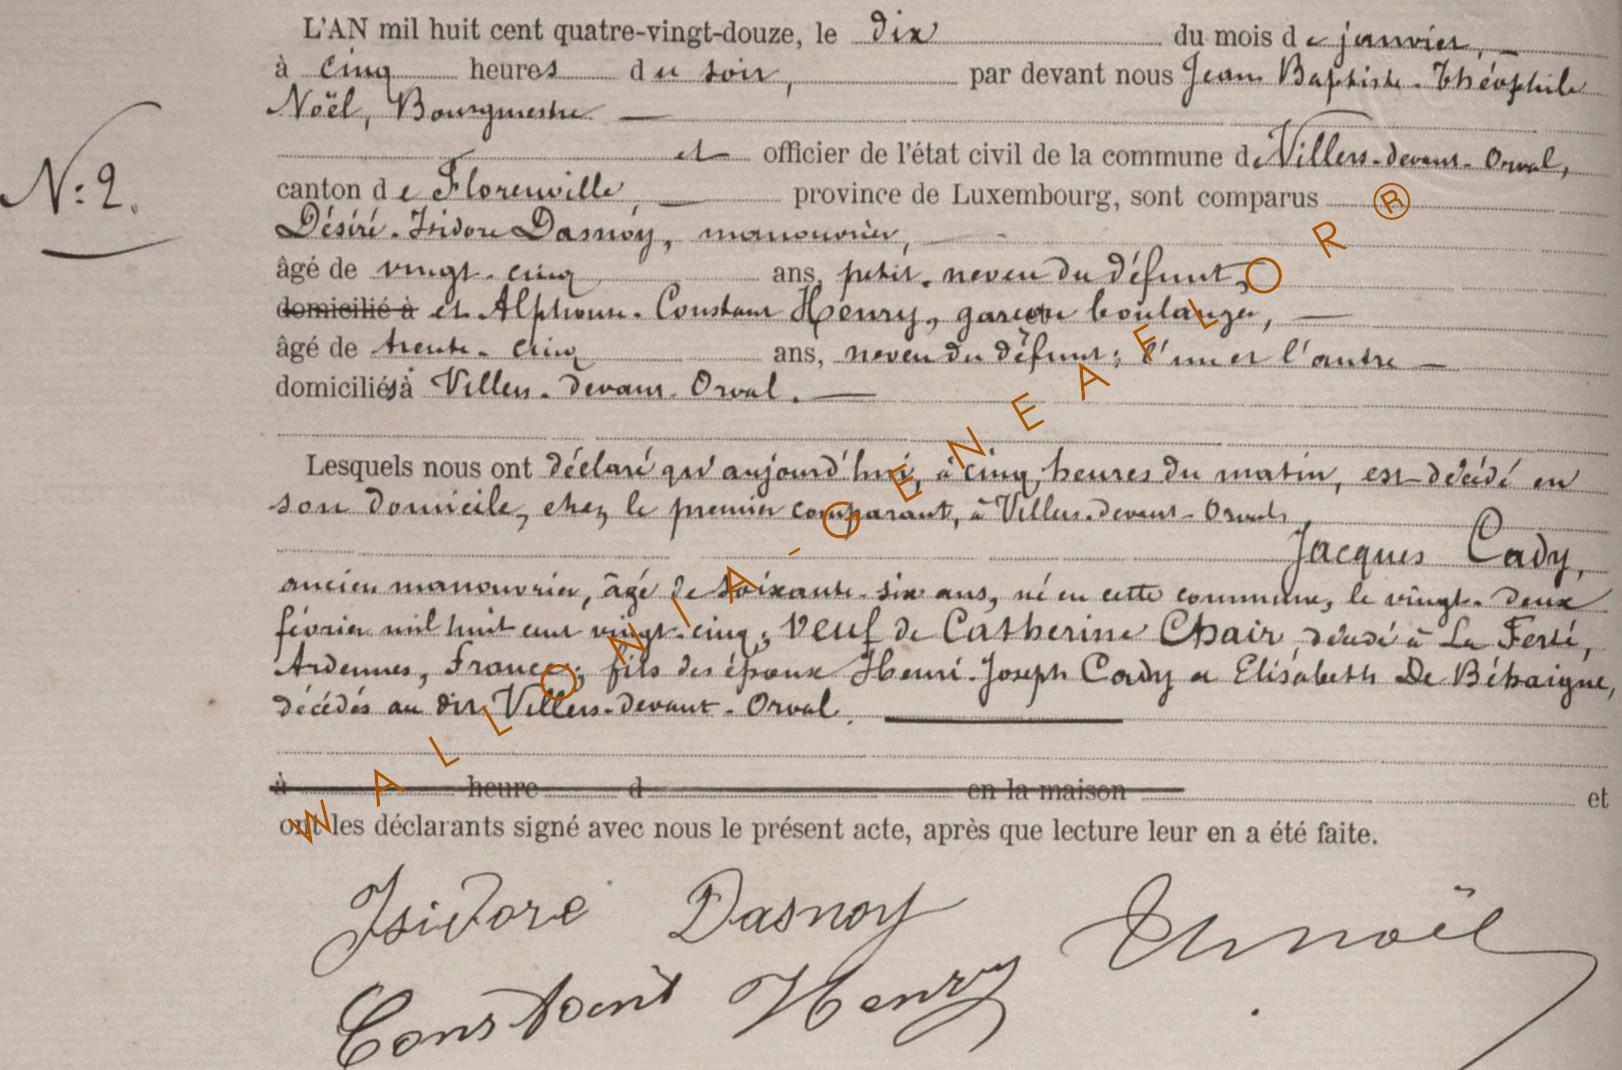 L'AN mil huit cent quatre-vingt-douze, le dix du mois de janvier,
à cinq heures du soir, par devant nous Jean Baptiste-Théophile
Noël, Bourgmestre
et officier de l'état civil de la commune de Villers-devant-Orval,
N: 2.
canton de Florenville, province de Luxembourg, sont comparus
Désiré-Isidore Dasnoy, manouvrier,
âgé de vingt-cinq ans, petit-neveu du défunt,
domicilié à et Alphonse-Constant Henry, garçon boulanger,
âgé de trente-cinq ans, neveu du défunt; l'un et l'autre
domiciliés à Villers-devant-Orval.
Lesquels nous ont déclaré qu'aujourd'hui, à cinq heures du matin, est décédé en
son domicile, chez le premier comparant, à Villers-devant-Orval,
Jacques Cady,
ancien manouvrier, âgé de soixante-six ans, né en cette commune, le vingt-deux
février mil huit cent vingt-cinq; veuf de Catherine Chair, décédé à La Ferté,
Ardennes, France; fils des époux Henri-Joseph Cady et Elisabeth De Béhaigne,
décédés au dit Villers-devant-Orval.
à heure d en la maison et
ont les déclarants signé avec nous le présent acte, après que lecture leur en a été faite.
Isidore Dasnoy Th Noël
Constant Henry
WALLONIA-GENEAFLOR®